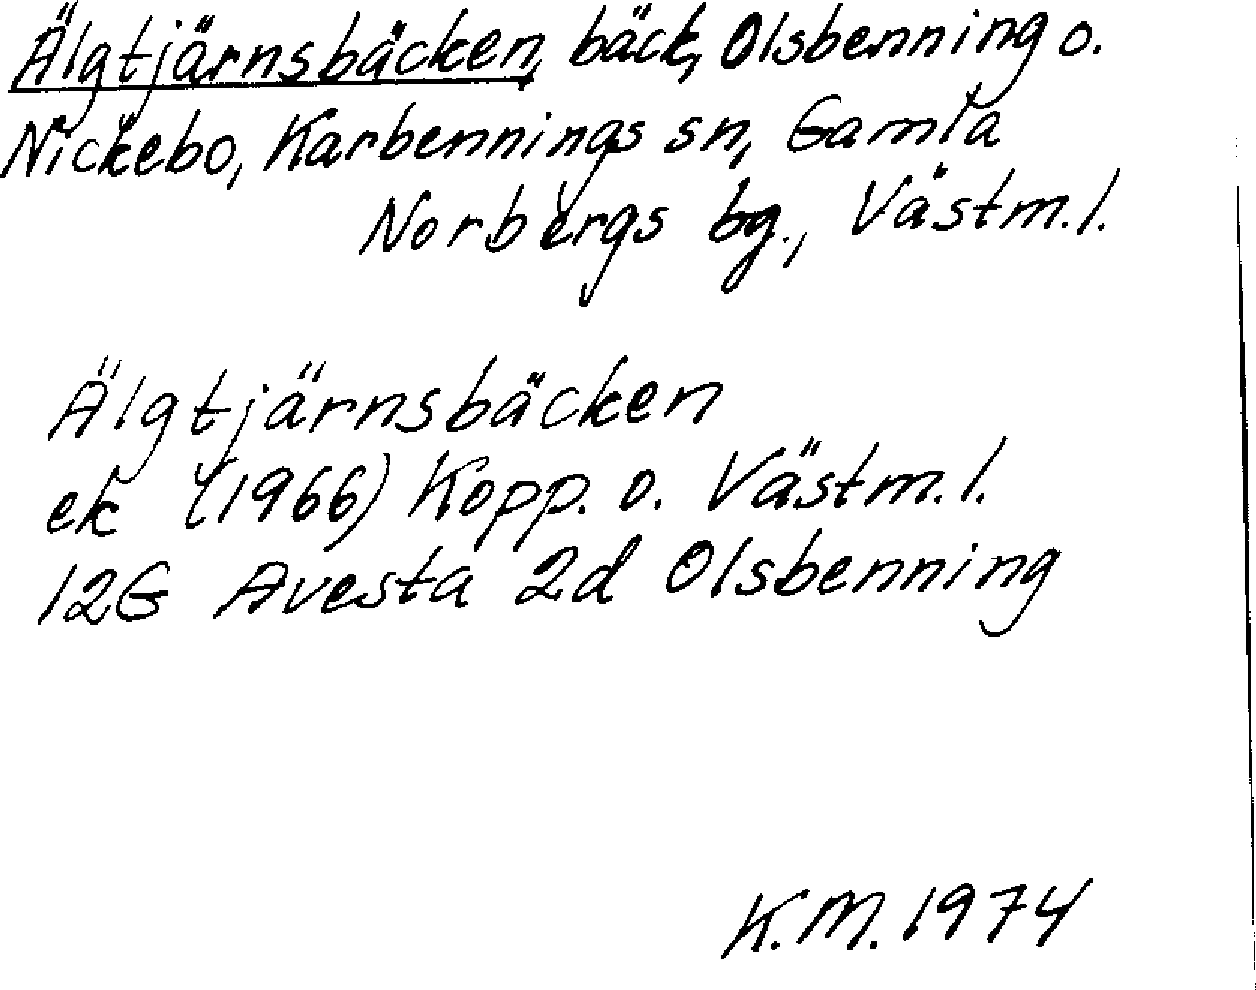 Älgtjärnsbäcken, bäck, Olsbenning o.
Nickebo, Karbennings sn, Gamla
Norbergs bg., Västm. l.
Älgtjärnsbäcken
ek (1966) Kopp. o. Västm. l.
12G Avesta 2d Olsbenning
K.M. 1974